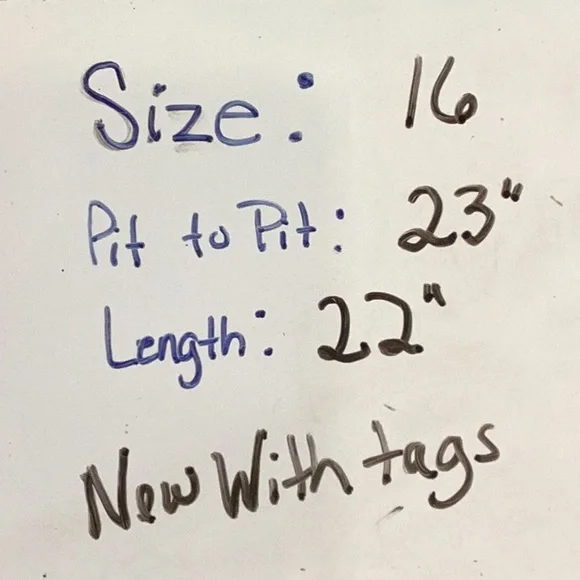 Size: 16
Pit to Pit: 23"
Length: 22"
New With tags